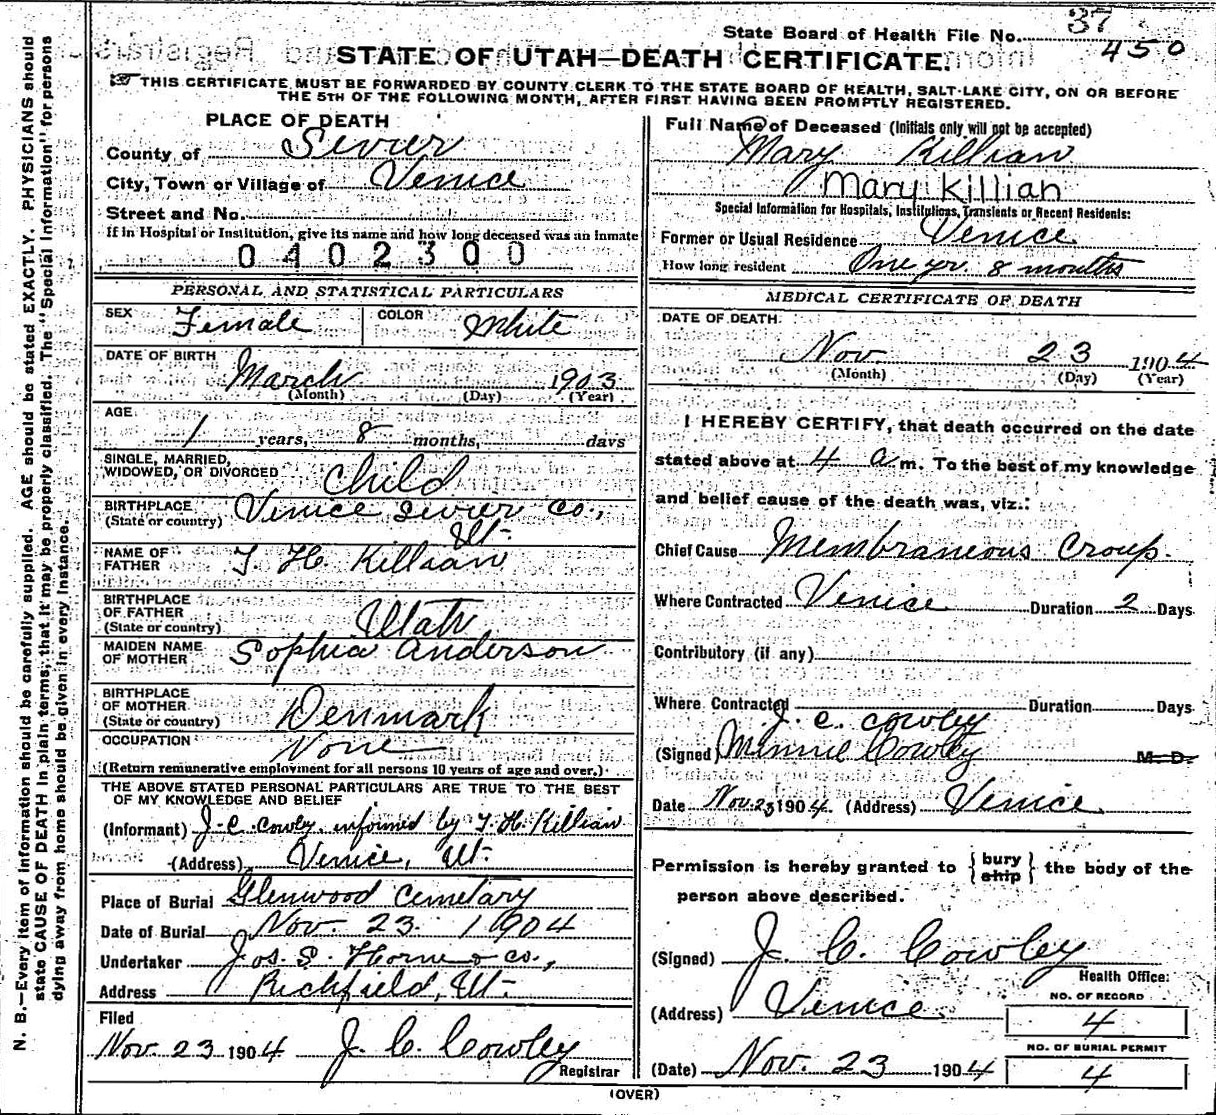 State Board of Health File No. 37
450
STATE OF UTAH—DEATH CERTIFICATE.
THIS CERTIFICATE MUST BE FORWARDED BY COUNTY CLERK TO THE STATE BOARD OF HEALTH, SALT LAKE CITY, ON OR BEFORE
THE 5TH OF THE FOLLOWING MONTH, AFTER FIRST HAVING BEEN PROMPTLY REGISTERED.
N. B.—Every item of information should be carefully supplied. AGE should be stated EXACTLY. PHYSICIANS should
state CAUSE OF DEATH in plain terms, that it may be properly classified. The "Special Information" for persons
dying away from home should be given in every instance.
PLACE OF DEATH
County of Sevier
City, Town or Village of Venice
Street and No.
If in Hospital or Institution, give its name and how long deceased was an inmate
0402300
PERSONAL AND STATISTICAL PARTICULARS
SEX Female COLOR White
DATE OF BIRTH
March 1903
(Month) (Day) (Year)
AGE
1 years, 8 months, days
SINGLE, MARRIED,
WIDOWED, OR DIVORCED Child
BIRTHPLACE
(State or country) Venice Sevier Co.,
Ut.
NAME OF
FATHER T. H. Killian
BIRTHPLACE
OF FATHER
(State or country) Utah
MAIDEN NAME
OF MOTHER Sophia Anderson
BIRTHPLACE
OF MOTHER
(State or country) Denmark
OCCUPATION None
(Return remunerative employment for all persons 10 years of age and over.)
THE ABOVE STATED PERSONAL PARTICULARS ARE TRUE TO THE BEST
OF MY KNOWLEDGE AND BELIEF
(Informant) J. C. Cowley informed by T. H. Killian
(Address) Venice, Ut.
Place of Burial Glenwood Cemetary
Date of Burial Nov. 23. 1904
Undertaker Jos. S. Horne & Co.,
Address Richfield, Ut.
Filed
Nov. 23 1904 J. C. Cowley
Registrar
Full Name of Deceased (Initials only will not be accepted)
Mary Killian
Mary Killian
Special Information for Hospitals, Institutions, Transients or Recent Residents:
Former or Usual Residence Venice
How long resident One yr. 8 months
MEDICAL CERTIFICATE OF DEATH
DATE OF DEATH
Nov 23 1904
(Month) (Day) (Year)
I HEREBY CERTIFY, that death occurred on the date
stated above at 4 a m. To the best of my knowledge
and belief cause of the death was, viz.:
Chief Cause Membraneous Croup.
Where Contracted Venice Duration 2 Days
Contributory (if any)
Where Contracted Duration Days
J. C. Cowley
(Signed) Minnie Cowley M. D.
Date Nov. 23 1904. (Address) Venice
Permission is hereby granted to { bury
ship } the body of the
person above described.
(Signed) J. C. Cowley
Health Officer
(Address) Venice
NO. OF RECORD
4
NO. OF BURIAL PERMIT
(Date) Nov. 23 1904 4
(OVER)